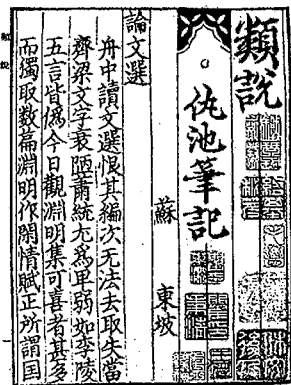 類說
仇池筆記
蘇 東坡
論文選
舟中讀文選恨其編次无法去取失當
齊梁文字衰陋蕭統尤爲卑弱如李陵
五言皆僞今日觀淵明集可喜者甚多
而獨取数篇淵明作閑情賦正所謂国